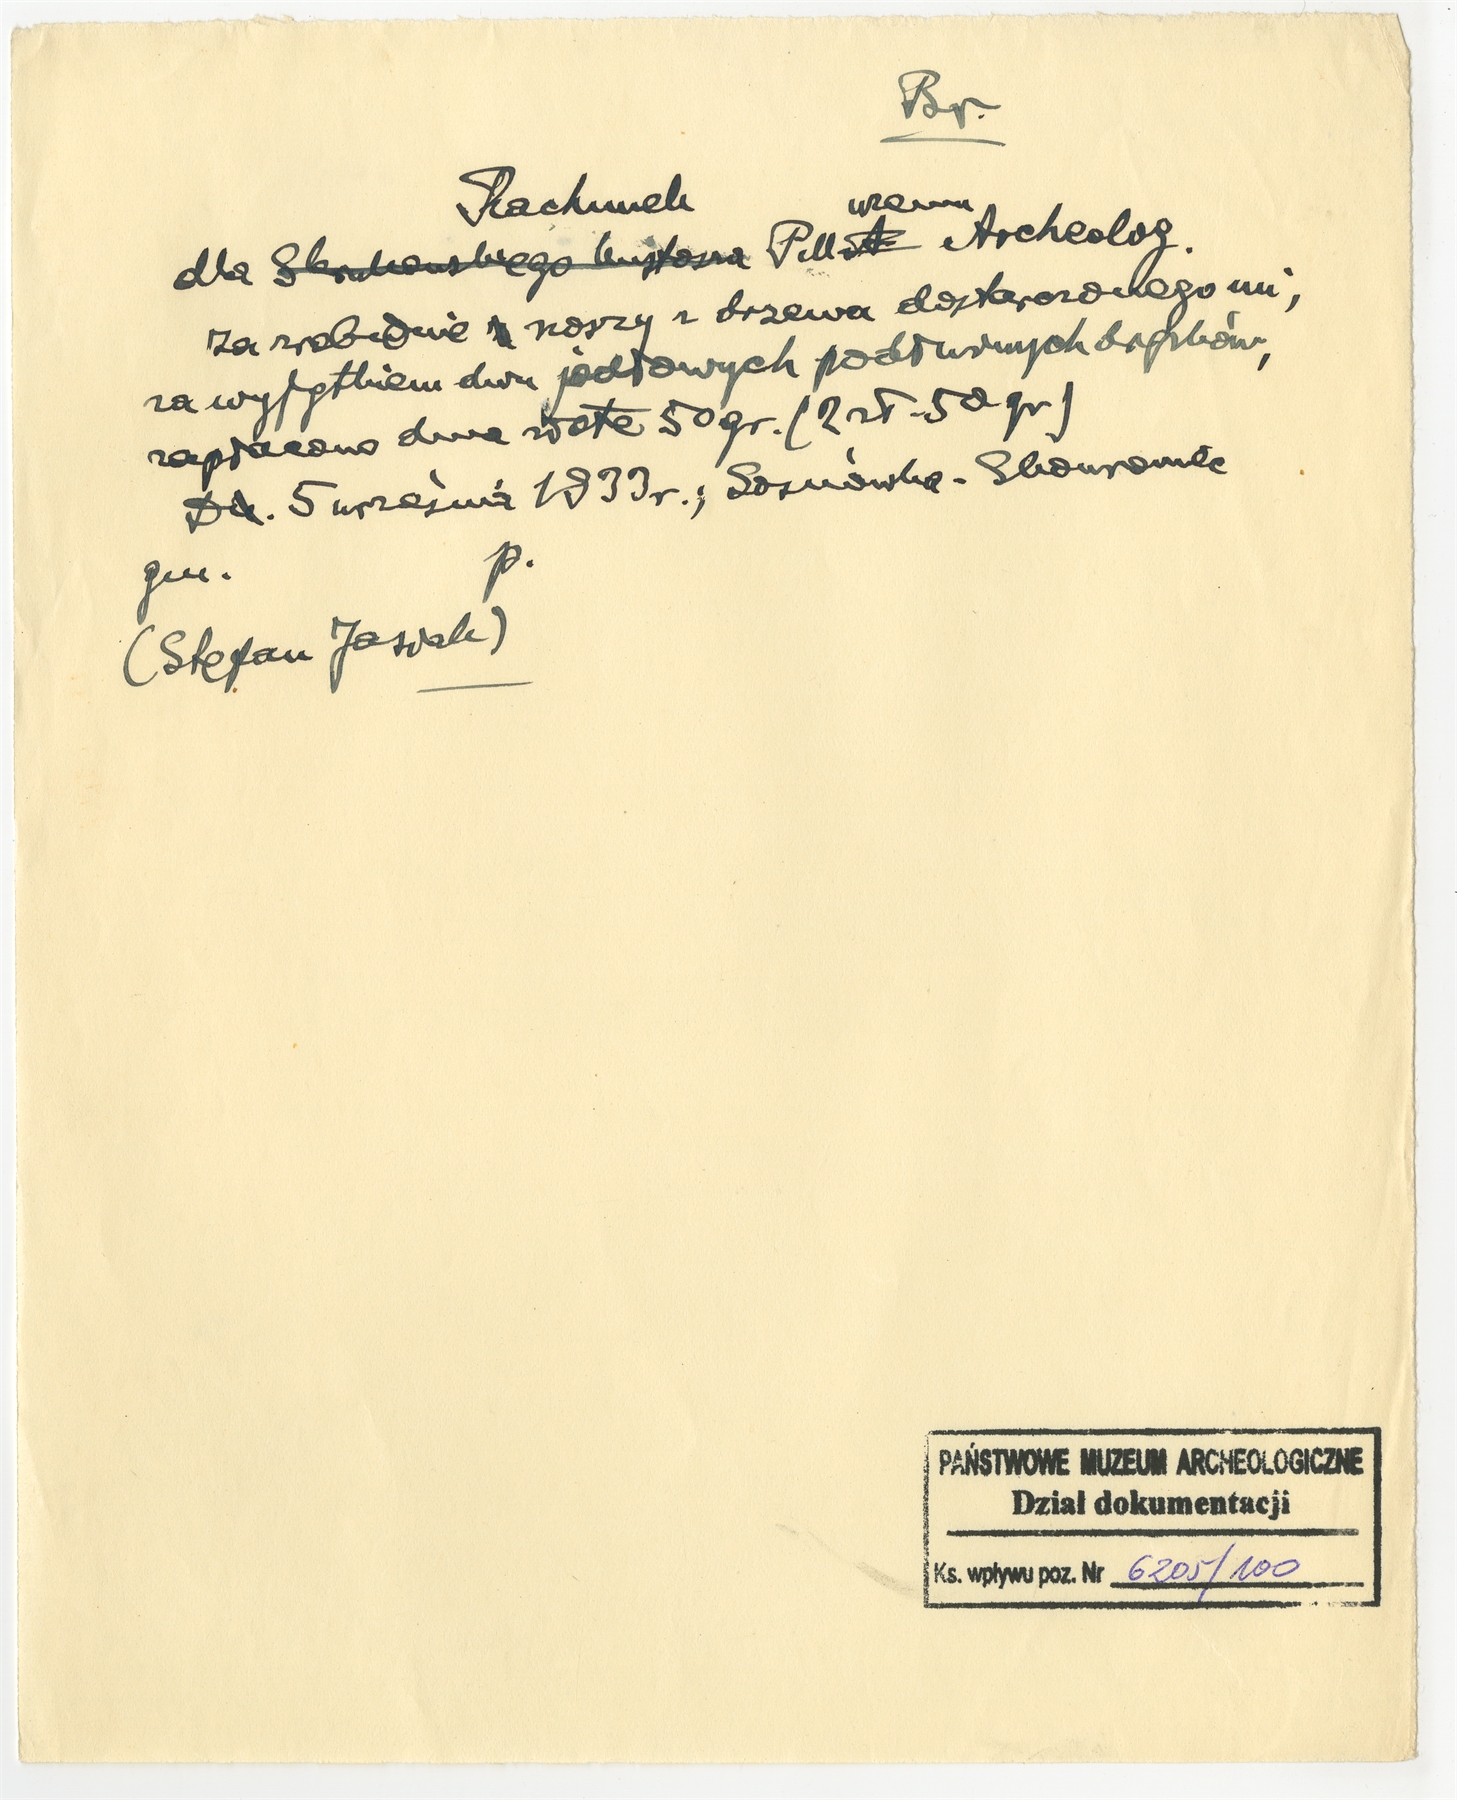 Br.
Rachunek
dla Skrukowskiego kustosza P. Muzeum Archeolog.
za zrobienie noszy z drzewa dostarczonego mi,
za wyjątkiem dwu jodłowych podłużnych drążków,
zapłacono dwa złote 50 gr. (2 zł - 50 gr)
Dn. 5 września 1933 r.; Sosnówka - Skowronek
gm. p.
(Stefan Jasiak)
PAŃSTWOWE MUZEUM ARCHEOLOGICZNE
Dział dokumentacji
Ks. wpływu poz. Nr 6205/100